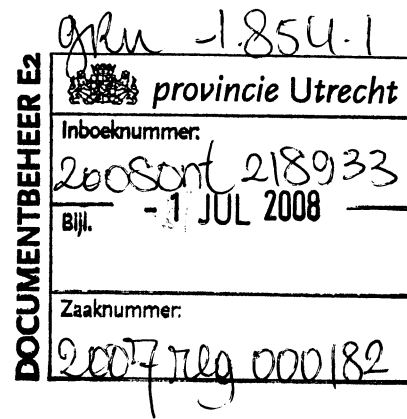 gRu -1.854.1
DOCUMENTBEHEER E2
provincie Utrecht
Inboeknummer:
2008ont 218933
Bijl. - 1 JUL 2008
Zaaknummer:
2007 reg 000182